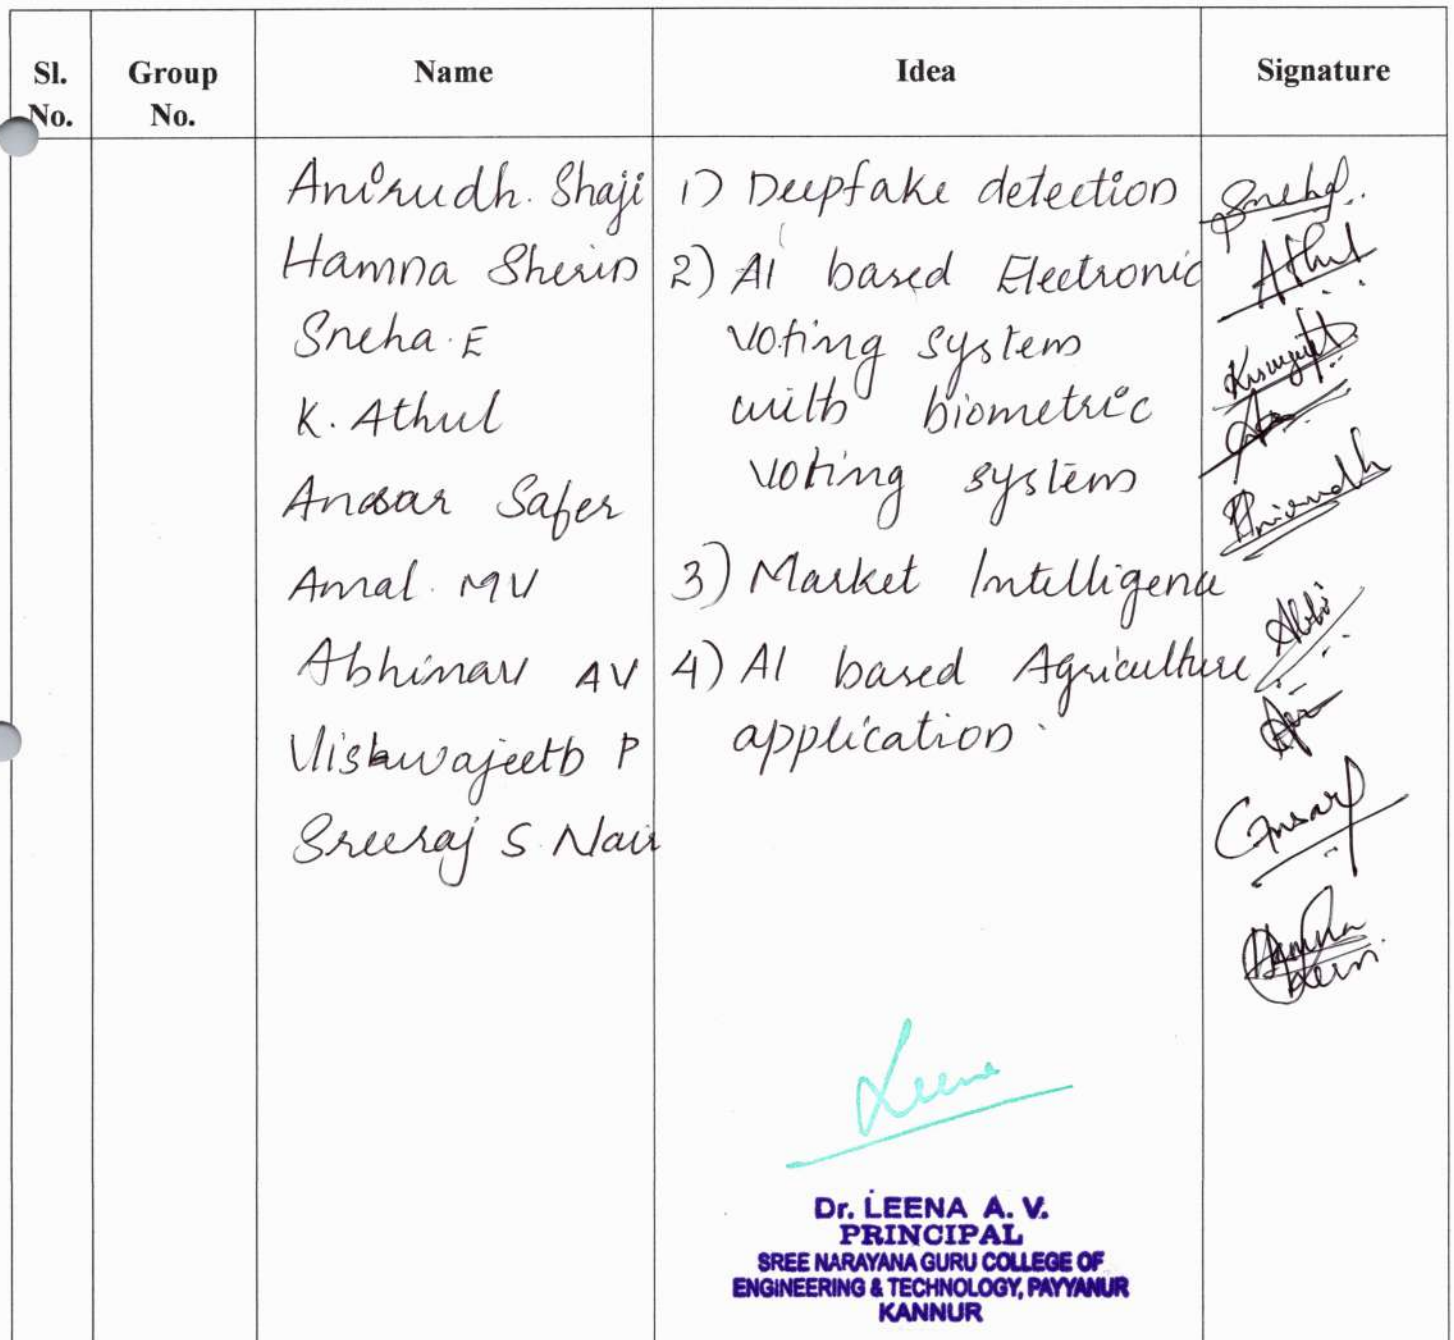 Sl. No.
Group No.
Name
Idea
Signature
Anirudh. Shaji
Hamna Sherin
Sneha. E
K. Athul
Ansar Safer
Amal. MV
Abhinav AV
Vishwajeeth P
Sreeraj S. Nair
1) Deepfake detection
2) AI based Electronic
voting system
with biometric
voting system
3) Market Intelligence
4) AI based Agriculture
application.
Sneha
Athul
Anirudh
Abhi
Ansar
Hamna
Leena
Dr. LEENA A. V.
PRINCIPAL
SREE NARAYANA GURU COLLEGE OF
ENGINEERING & TECHNOLOGY, PAYYANUR
KANNUR